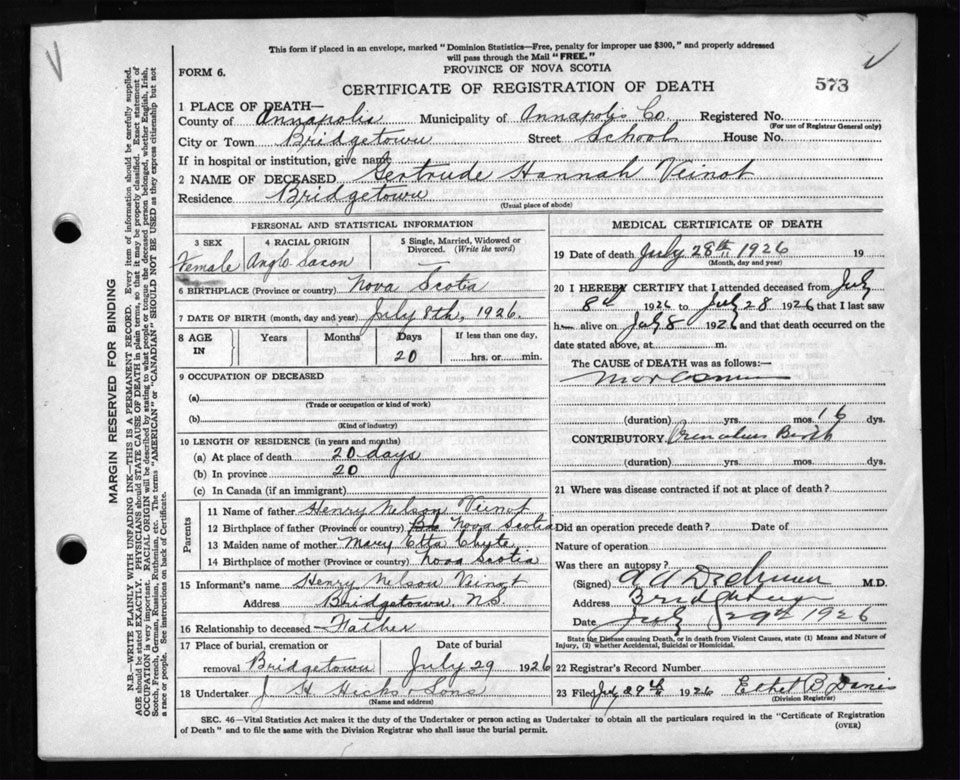 This form if placed in an envelope, marked "Dominion Statistics—Free, penalty for improper use $300," and properly addressed
will pass through the Mail "FREE."
PROVINCE OF NOVA SCOTIA
FORM 6.
CERTIFICATE OF REGISTRATION OF DEATH
573
1 PLACE OF DEATH—
County of Annapolis Municipality of Annapolis Co. Registered No.
(For use of Registrar General only)
City or Town Bridgetown Street School House No.
If in hospital or institution, give name
2 NAME OF DECEASED Gertrude Hannah Veinot
Residence Bridgetown
(Usual place of abode)
PERSONAL AND STATISTICAL INFORMATION
3 SEX Female
4 RACIAL ORIGIN Anglo Sacon
5 Single, Married, Widowed or Divorced. (Write the word)
6 BIRTHPLACE (Province or country) Nova Scotia
7 DATE OF BIRTH (month, day and year) July 8th, 1926.
8 AGE IN Years Months Days 20 If less than one day, hrs. or min.
9 OCCUPATION OF DECEASED
(a)
(Trade or occupation or kind of work)
(b)
(Kind of industry)
10 LENGTH OF RESIDENCE (in years and months)
(a) At place of death 20 days
(b) In province 20
(c) In Canada (if an immigrant)
Parents
11 Name of father Henry Nelson Veinot
12 Birthplace of father (Province or country) Nova Scotia
13 Maiden name of mother Mary Etta Chyte
14 Birthplace of mother (Province or country) Nova Scotia
15 Informant's name Henry Nelson Vinot
Address Bridgetown, N.S.
16 Relationship to deceased Father
17 Place of burial, cremation or removal Bridgetown Date of burial July 29 1926
18 Undertaker J H Hicks & Sons
(Name and address)
MEDICAL CERTIFICATE OF DEATH
19 Date of death July 28th, 1926 19
(Month, day and year)
20 I HEREBY CERTIFY that I attended deceased from July
8th 1926 to July 28 1926 that I last saw
h alive on July 8 1926 and that death occurred on the
date stated above, at m.
The CAUSE OF DEATH was as follows:—
(duration) yrs. mos. 16 dys.
CONTRIBUTORY Birth
(duration) yrs. mos. dys.
21 Where was disease contracted if not at place of death?
Did an operation precede death? Date of
Nature of operation
Was there an autopsy?
(Signed) M.D.
Address
Date July 29th 1926
State the Disease causing Death, or in death from Violent Causes, state (1) Means and Nature of
Injury, (2) whether Accidental, Suicidal or Homicidal.
22 Registrar's Record Number
23 Filed July 29th 1926 Ethel B Davis
(Division Registrar)
SEC. 46—Vital Statistics Act makes it the duty of the Undertaker or person acting as Undertaker to obtain all the particulars required in the "Certificate of Registration
of Death" and to file the same with the Division Registrar who shall issue the burial permit.
(OVER)
MARGIN RESERVED FOR BINDING
N.B.—WRITE PLAINLY WITH UNFADING INK—THIS IS A PERMANENT RECORD. Every item of information should be carefully supplied.
AGE should be stated EXACTLY. PHYSICIANS should STATE CAUSE OF DEATH in plain terms, so that it may be properly classified. Exact statement of
OCCUPATION is very important. RACIAL ORIGIN will be described by stating to what people or tongue the deceased person belonged, whether English, Irish,
Scotch, French, German, Russian, Ruthenian, etc. The terms "AMERICAN" or "CANADIAN" SHOULD NOT BE USED as they express citizenship but not
a race or people. See instructions on back of Certificate.